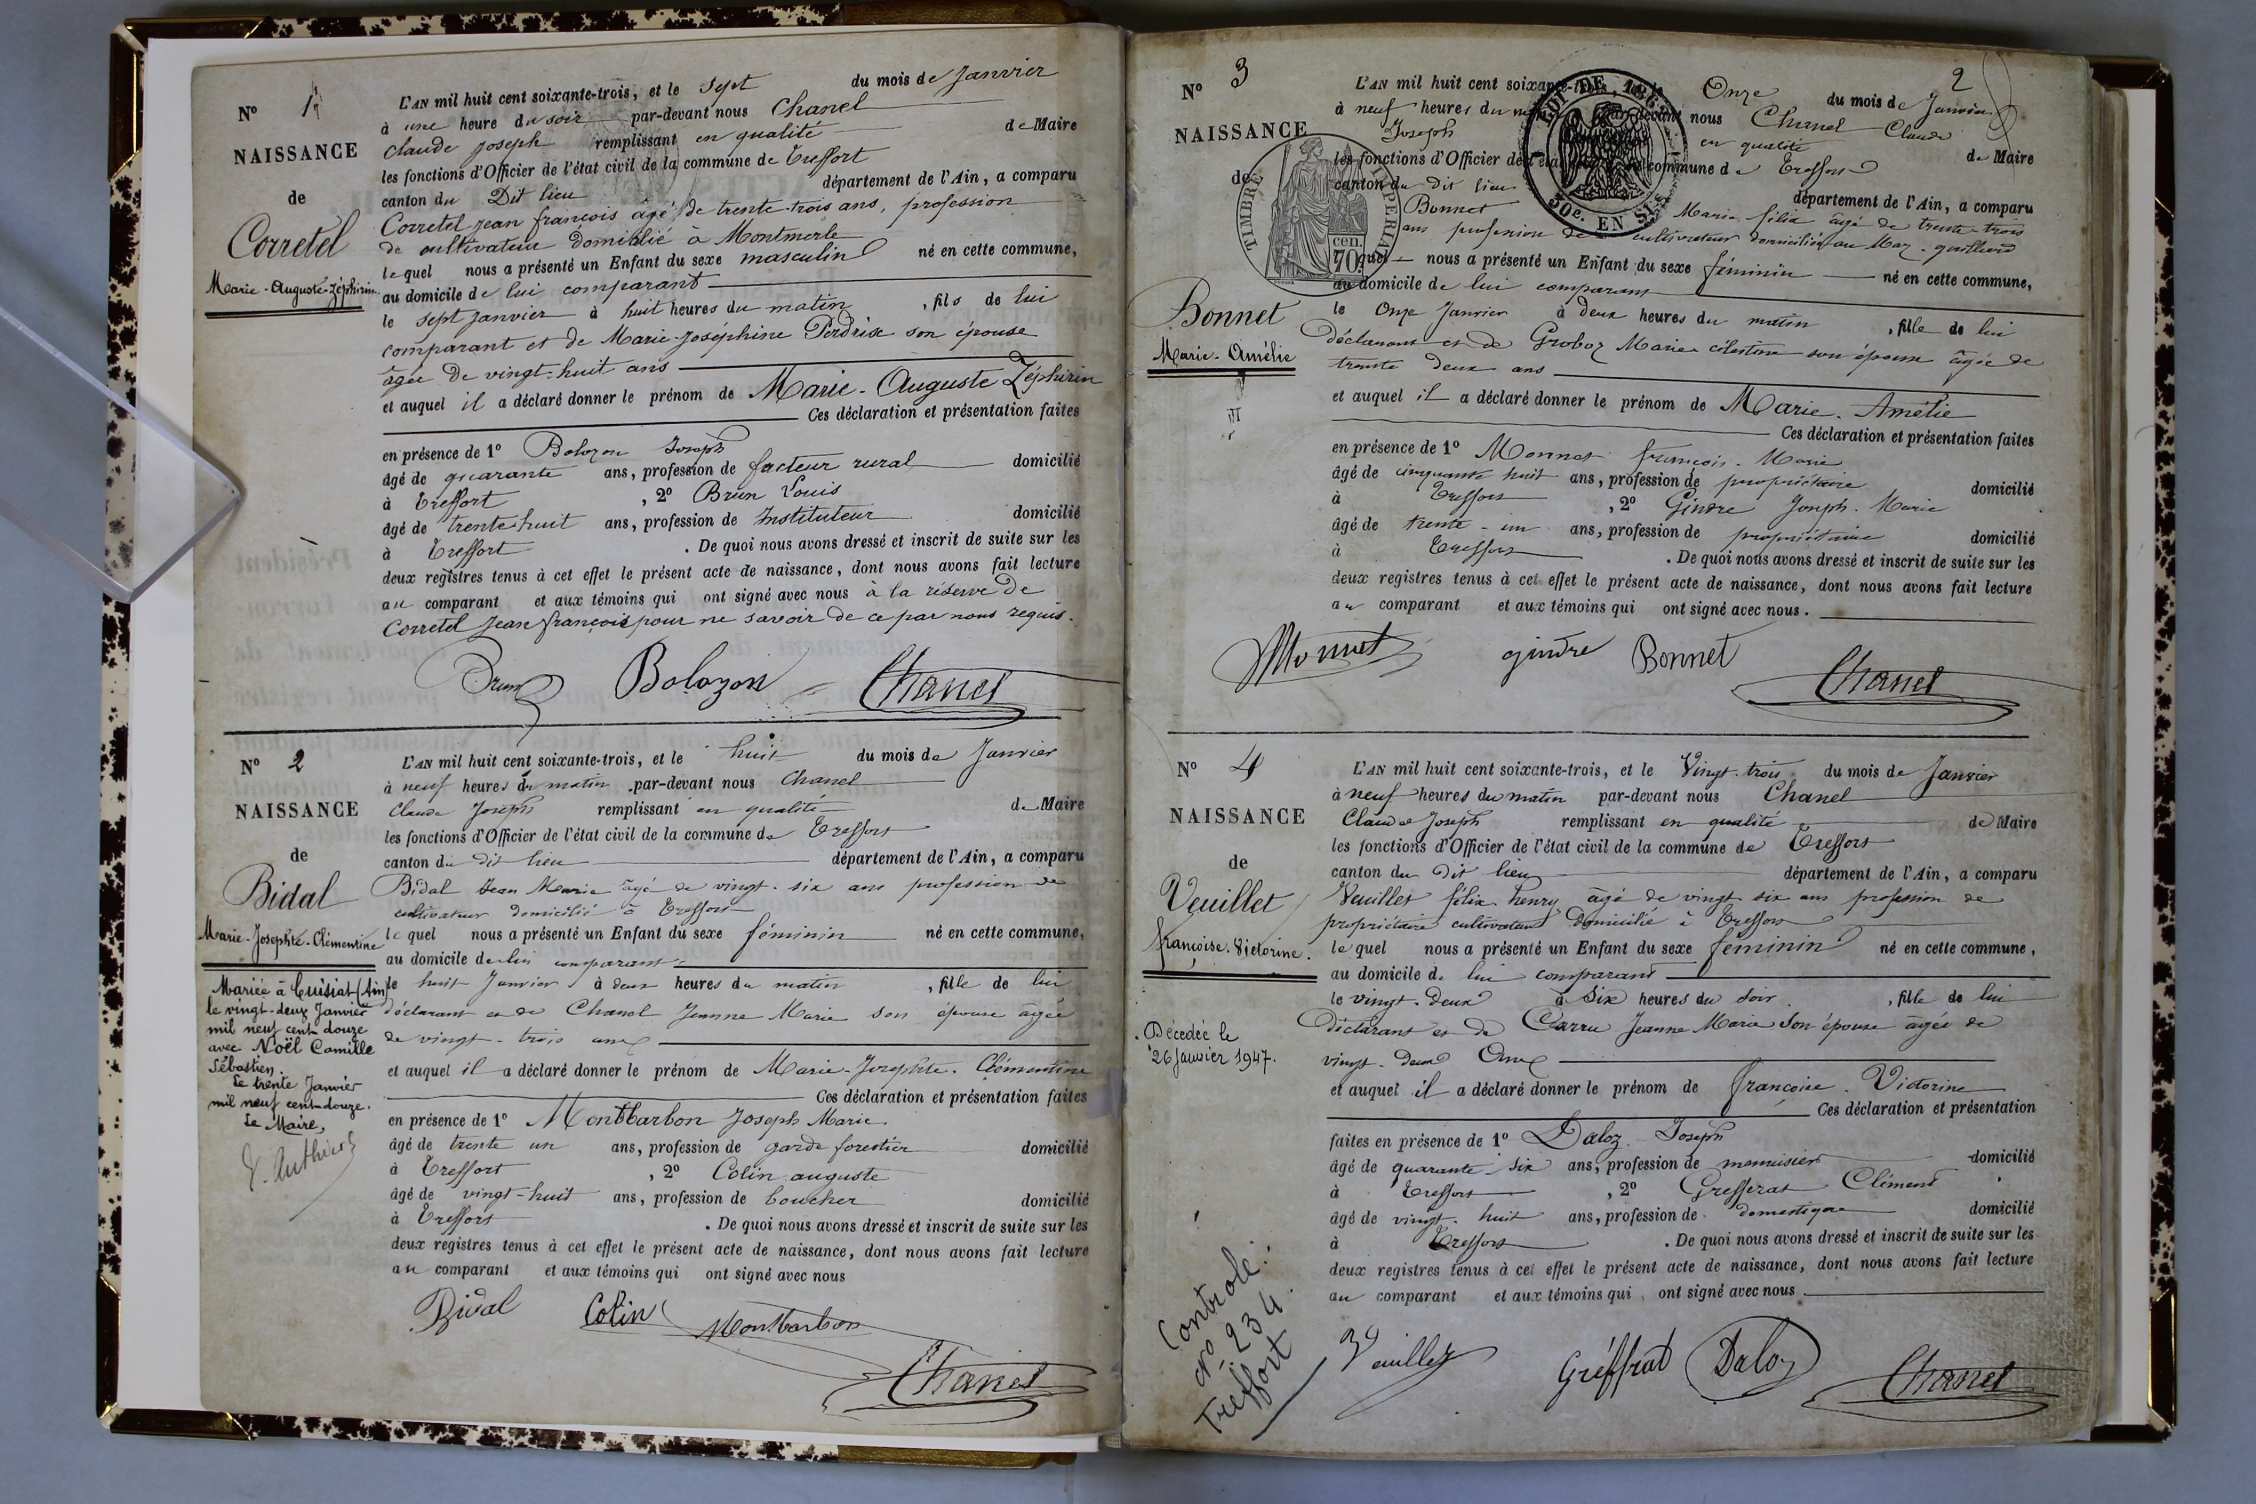 Nº 1
NAISSANCE
de
Corretel
Marie-Auguste-Zéphirin
L'AN mil huit cent soixante-trois, et le sept du mois de Janvier
à une heure du soir par-devant nous Chanel
Claude Joseph remplissant en qualité de Maire
les fonctions d'Officier de l'état civil de la commune de Treffort
canton du Dit lieu département de l'Ain, a comparu
Corretel Jean françois âgé de trente-trois ans, profession
de cultivateur domicilié à Montmerle
lequel nous a présenté un Enfant du sexe masculin né en cette commune,
au domicile de lui comparant
le sept janvier à huit heures du matin, fils de lui
comparant et de Marie-Joséphine Perdrix son épouse
âgée de vingt-huit ans
et auquel il a déclaré donner le prénom de Marie-Auguste Zéphirin
Ces déclaration et présentation faites
en présence de 1º Bolozon Joseph
âgé de quarante ans, profession de facteur rural domicilié
à Treffort, 2º Brun Louis
âgé de trente-huit ans, profession de Instituteur domicilié
à Treffort. De quoi nous avons dressé et inscrit de suite sur les
deux registres tenus à cet effet le présent acte de naissance, dont nous avons fait lecture
au comparant et aux témoins qui ont signé avec nous à la réserve de
Corretel Jean françois pour ne savoir de ce par nous requis.
Brun Bolozon Chanel
Nº 2
NAISSANCE
de
Bidal
Marie-Josephte-Clémentine
Mariée à Cuisiat (Ain)
le vingt-deux Janvier
mil neuf cent douze
avec Noël Camille
Sébastien.
Le trente Janvier
mil neuf cent-douze.
Le Maire,
L'AN mil huit cent soixante-trois, et le huit du mois de Janvier
à neuf heures du matin par-devant nous Chanel
Claude Joseph remplissant en qualité de Maire
les fonctions d'Officier de l'état civil de la commune de Treffort
canton du dit lieu département de l'Ain, a comparu
Bidal Jean Marie âgé de vingt-six ans profession de
cultivateur domicilié à Treffort
lequel nous a présenté un Enfant du sexe féminin né en cette commune,
au domicile de lui comparant
le huit Janvier à deux heures du matin, fille de lui
déclarant et de Chanel Jeanne Marie son épouse âgée
de vingt-trois ans
et auquel il a déclaré donner le prénom de Marie-Josephte-Clémentine
Ces déclaration et présentation faites
en présence de 1º Montbarbon Joseph Marie
âgé de trente un ans, profession de garde forestier domicilié
à Treffort, 2º Colin auguste
âgé de vingt-huit ans, profession de boucher domicilié
à Treffort. De quoi nous avons dressé et inscrit de suite sur les
deux registres tenus à cet effet le présent acte de naissance, dont nous avons fait lecture
au comparant et aux témoins qui ont signé avec nous
Bidal Colin Montbarbon
Chanel
2
Nº 3
NAISSANCE
de
Bonnet
Marie-Amélie
TIMBRE IMPERIAL
70 cen.
LOI DE 1862
30c. EN SUS
L'AN mil huit cent soixante-trois Onze du mois de Janvier
à neuf heures du par-devant nous Chanel Claude
Joseph en qualité de Maire
les fonctions d'Officier de commune de Treffort
canton du dit lieu département de l'Ain, a comparu
Bonnet Marie félix âgé de trente-trois
ans profession de cultivateur domicilié au
lequel nous a présenté un Enfant du sexe féminin né en cette commune,
au domicile de lui comparant
le Onze Janvier à deux heures du matin, fille de lui
déclarant et de Groboz Marie célestine son épouse âgée de
trente deux ans
et auquel il a déclaré donner le prénom de Marie-Amélie
Ces déclaration et présentation faites
en présence de 1º Monnet françois-Marie
âgé de cinquante huit ans, profession de propriétaire domicilié
à Treffort, 2º Gindre Joseph-Marie
âgé de trente-un ans, profession de propriétaire domicilié
à Treffort. De quoi nous avons dressé et inscrit de suite sur les
deux registres tenus à cet effet le présent acte de naissance, dont nous avons fait lecture
au comparant et aux témoins qui ont signé avec nous.
Monnet gindre Bonnet Chanel
Nº 4
NAISSANCE
de
Veuillet
françoise-Victorine.
Décédée le
26 Janvier 1947.
L'AN mil huit cent soixante-trois, et le Vingt-trois du mois de Janvier
à neuf heures du matin par-devant nous Chanel
Claude Joseph remplissant en qualité de Maire
les fonctions d'Officier de l'état civil de la commune de Treffort
canton du dit lieu département de l'Ain, a comparu
Veuillet félix henry âgé de vingt six ans profession de
propriétaire cultivateur domicilié à Treffort
lequel nous a présenté un Enfant du sexe féminin né en cette commune,
au domicile de lui comparant
le vingt-deux à Six heures du soir, fille de lui
déclarant et de Carru Jeanne Marie Son épouse âgée de
vingt-deux Ans
et auquel il a déclaré donner le prénom de françoise-Victorine
Ces déclaration et présentation
faites en présence de 1º Daloz Joseph
âgé de quarante-six ans, profession de menuisier domicilié
à Treffort, 2º Greffrat Clément
âgé de vingt-huit ans, profession de domestique domicilié
à Treffort. De quoi nous avons dressé et inscrit de suite sur les
deux registres tenus à cet effet le présent acte de naissance, dont nous avons fait lecture
au comparant et aux témoins qui ont signé avec nous
Veuillet Gréffrat Daloz Chanel
Contrôle:
Nº 234
Treffort